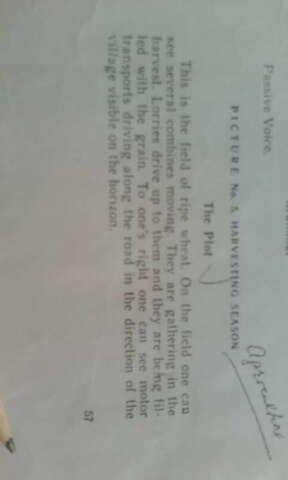 Passive Voice.
PICTURE No 5. HARVESTING SEASON
The Plot
This is the field of ripe wheat. On the field one can
see several combines moving. They are gathering in the
harvest. Lorries drive up to them and they are being fil-
led with the grain. To one's right one can see motor
transports driving along the road in the direction of the
village visible on the horizon.
57